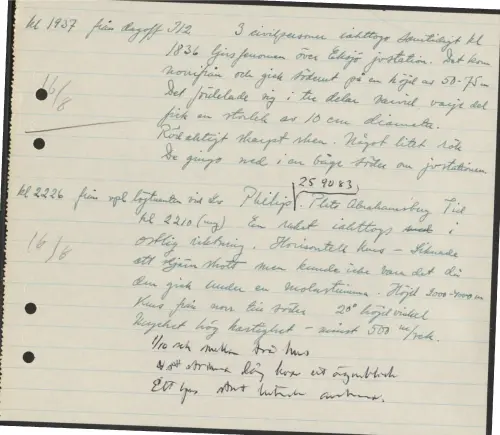 kl 1937 från dagoff I12 3 civilpersoner iakttogs samtidigt kl
1836 ljusfenomen över Eksjö jvstation. Det kom
norrifrån och gick söderut på en höjd av 50-75 m
16/8
Det fördelade sig i tre delar varvid varje del
fick en storlek av 10 cm diameter.
Rödaktigt skarpt sken. Något litet rök
De gingo ned i en båge söder om jvstationen.
25 90 83
kl 2226 från vpl löjtnanten vid Philips Abrahamsberg Tid
kl 2210 (ung) En raket iakttogs i
16/8
ostlig riktning. Horisontell kurs - Liknade
ett stjärnskott men kunde icke vara det då
den gick under en molnstrimma. Höjd 3000-4000 m
Kurs från norr till söder 20° höjdvinkel
Mycket hög hastighet - minst 500 m/sek.
1/10 sek mellan två hus
ett ögonblick
Ett ljus